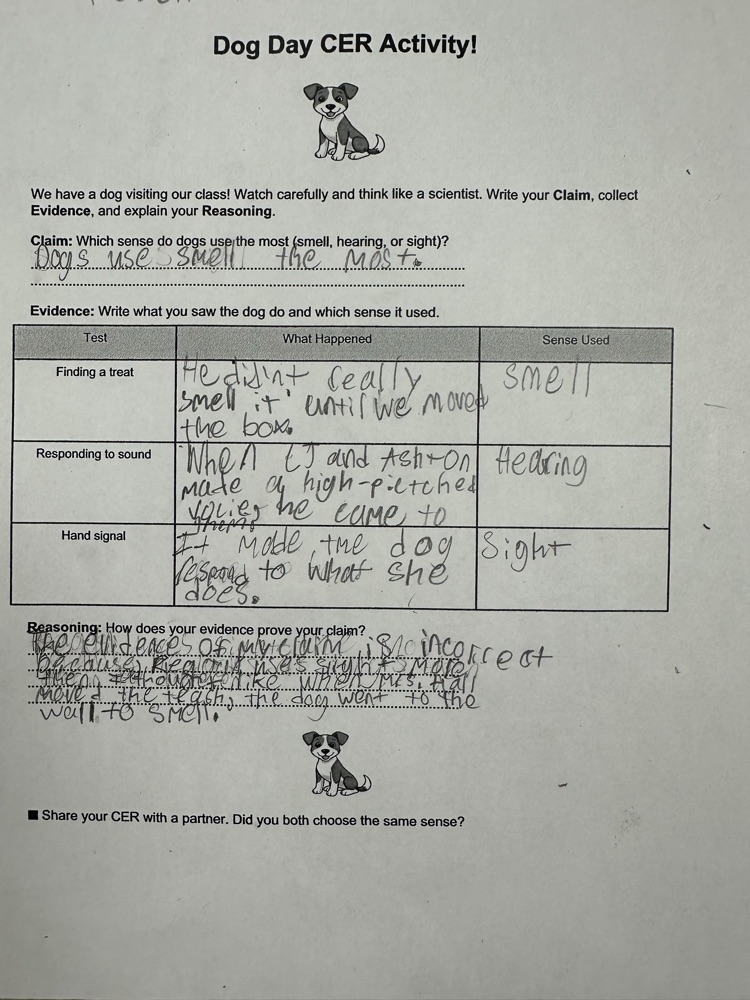 Dog Day CER Activity!
We have a dog visiting our class! Watch carefully and think like a scientist. Write your Claim, collect
Evidence, and explain your Reasoning.
Claim: Which sense do dogs use the most (smell, hearing, or sight)?
Dogs use smell the most.
Evidence: Write what you saw the dog do and which sense it used.
Test What Happened Sense Used
Finding a treat
He didn't really
smell it until we moved
the box.
smell
Responding to sound
When CJ and Ashton
made a high-pietched
he came to
them.
Hearing
Hand signal
It made the dog
respond to what she
does.
Sight
Reasoning: How does your evidence prove your claim?
The evidence of my claim is incorrect
because uses sight more
then I thought like when Mrs. Hall
moved the leash, the dog went to the
wall to smell.
■ Share your CER with a partner. Did you both choose the same sense?